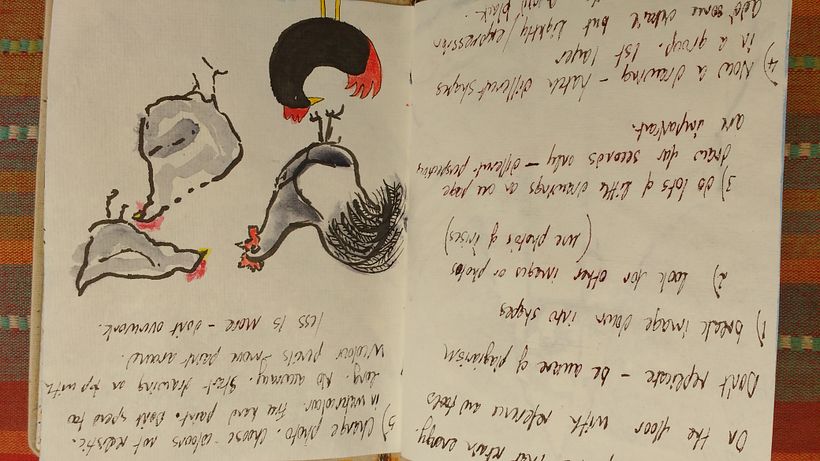 that retain energy.
On the floor with reference and tools
Don't replicate - be aware of plagiarism
1) break image down into shapes
2) look for other images or photos
(use photos of irises)
3) do lots of little drawings on one page
draw for seconds only - different perspectives
are important.
4) Now a drawing - hatch different shapes
in a group. 1st layer
add some detail but lightly/expression
and black.
5) Change photo. Choose colours not realistic.
in watercolour. Free hand paint. Dont spend too
long. No accuracy. Start drawing on top with
W'colour pencils move paint around.
less is more - dont overwork.